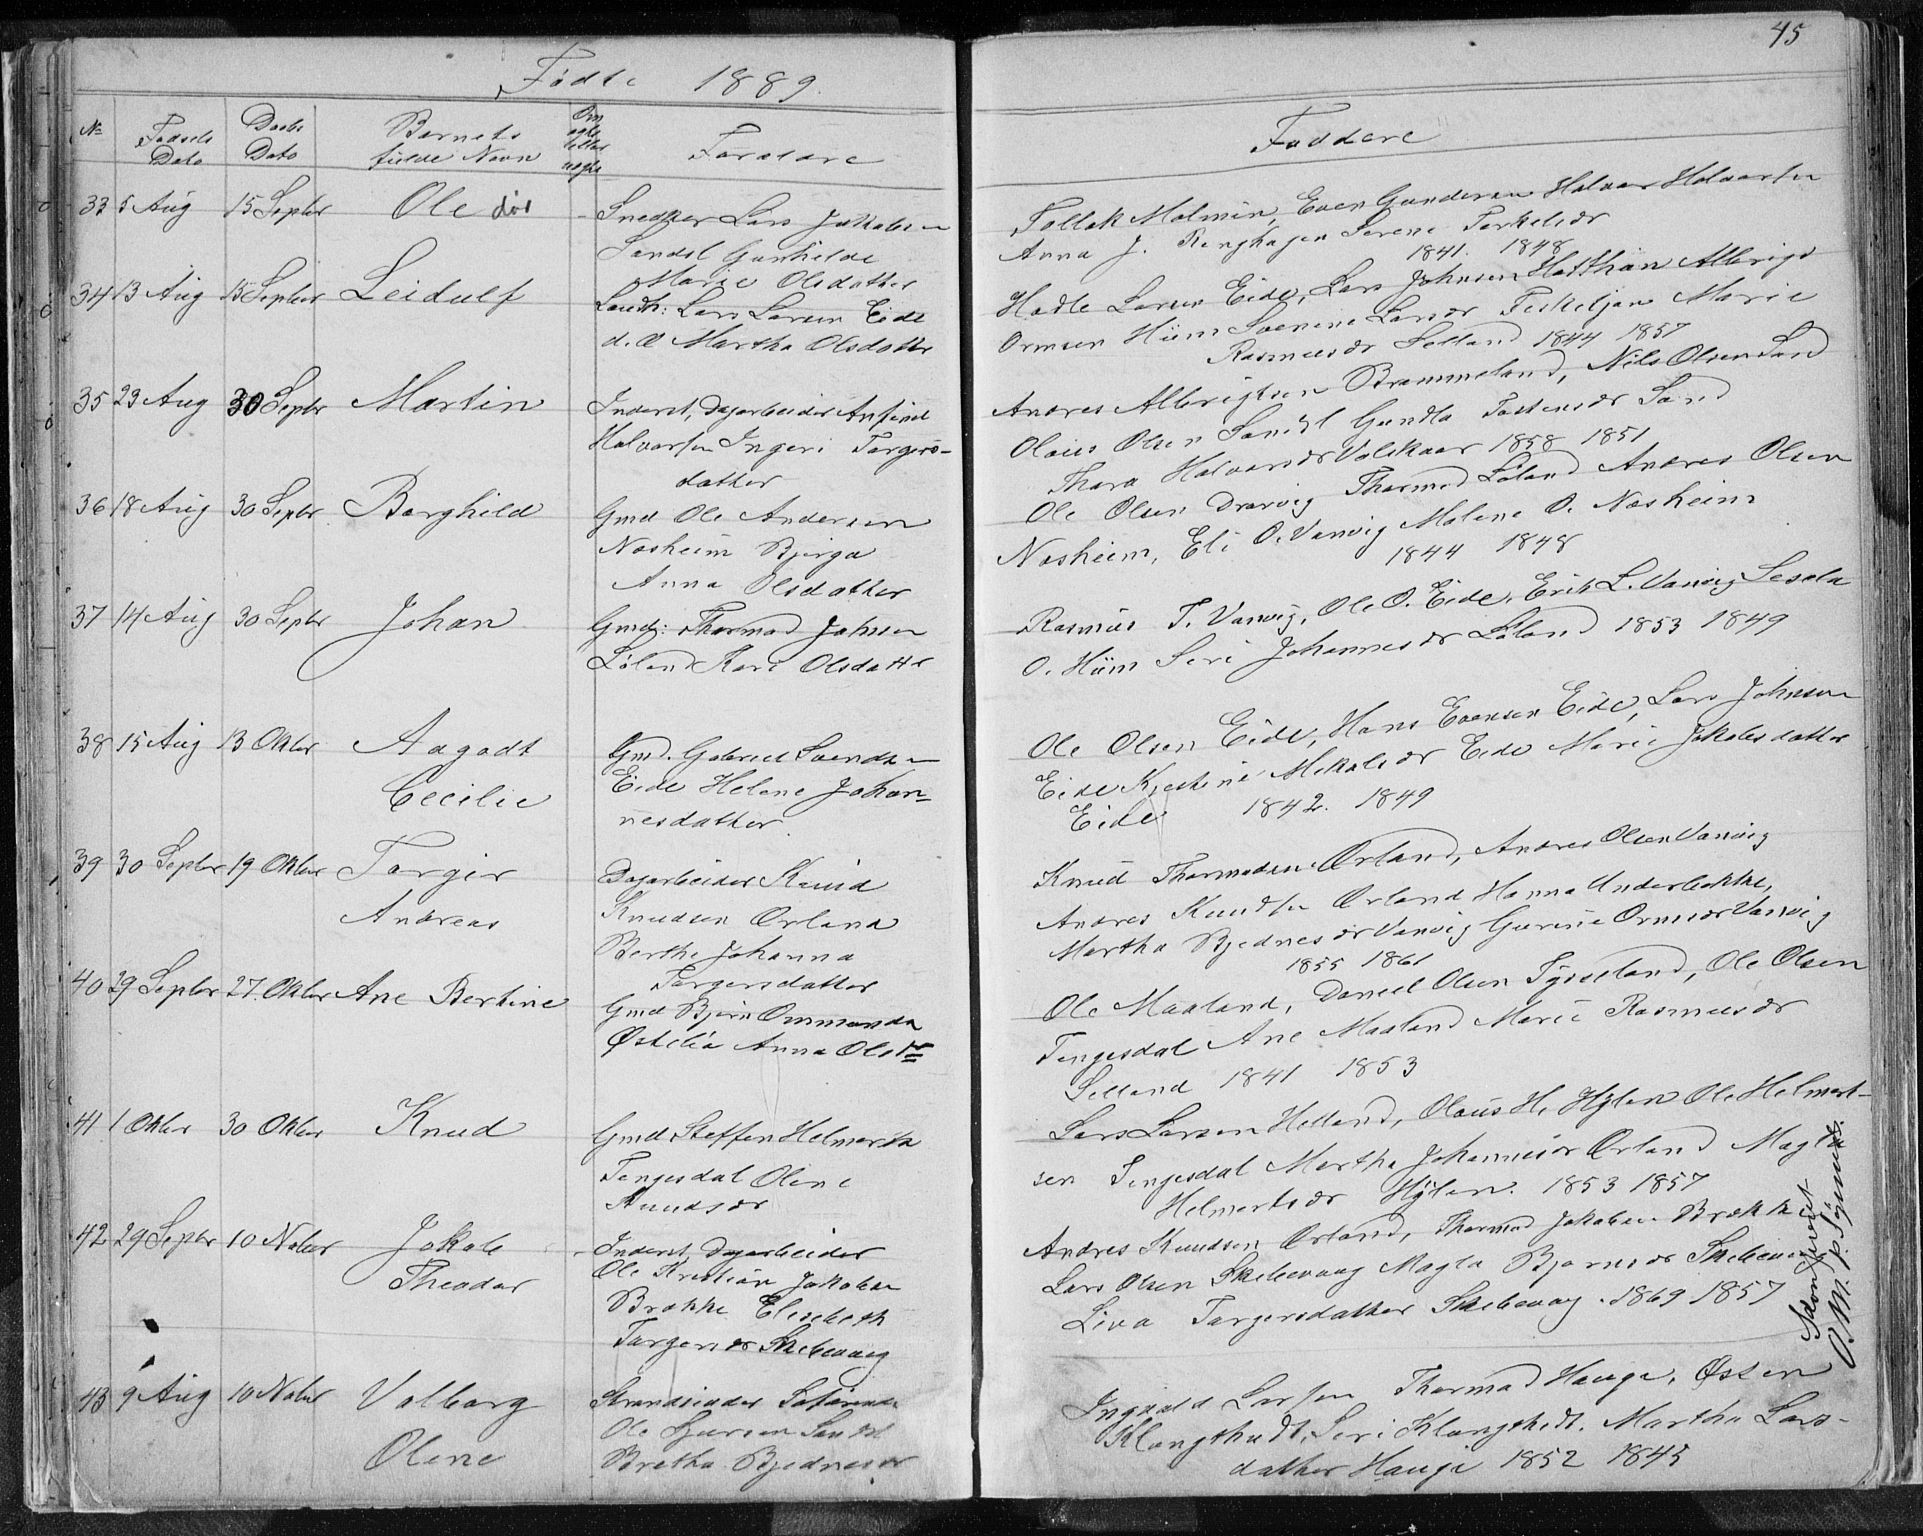 45
Fødte 1889.
No
Fødsels Dato
Daabs Dato
Barnets fulde Navn
Forældre
Faddere
33 5 Aug 15 Septbr Ole død
Snedker Lars Jakobsen
Sandsl Gunhilde
Marie Olsdatter
Follak Malmin, Even Gundersen Halvar Halvarsen
Anna J. Ringhagen Serene Terkelsdr
1841. 1848
34 13 Aug 15 Septbr Leidulf
Lars Larsen Eide
Martha Olsdatter
Hadle Larsen Eide, Lars Johnsen Albrigt
Ormsen Hiim Larsdr Marie
Rasmusdr Selland 1844 1857
35 23 Aug 30 Septbr Martin
Inderst, Dagarbeider Anfind
Halvorsen Ingeri Torgers-
datter
Andres Albrigtsen Brommeland, Nils Olsen Sand
Olaus Olsen Sandsl Gundla Tostensdr Sand
Thora Halvarsdr Valskaar 1858 1851
36 18 Aug 30 Septbr Borghild
Gmd Ole Andersen
Nosheim Bjørga
Anna Olsdatter
Ole Olsen Drarvig Thormod Løland Andres Olsen
Nosheim, Eli O. Vanvig Malene O. Nosheim
1844 1848
37 14 Aug 30 Septbr Johan
Gmd: Thormod Johnsen
Løland Kari Olsdatter
Rasmus T. Vanvig, Ole O. Eide, Erik L. Vanvig Sesela
O. Hiim Seri Johannesdr Løland 1853 1849
38 15 Aug 13 Oktbr Aagodt
Cecilie
Gmd. Gabriel Svendsen
Eide Helene Johan-
nesdatter.
Ole Olsen Eide, Hans Evensen Eide, Lars Johnsen
Eide Kjestine Mikalsdr Eide Marie Jakobsdatter
Eide 1842. 1849
39 30 Septbr 19 Oktbr Torger
Andreas
Dagarbeider Knud
Knudsen Ørland
Berthe Johanna
Torgersdatter
Knud Thormodsen Ørland, Andres Olsen Vanvig
Andres Knudsen Ørland Hanna Underbakke,
Martha Bjednesdr Vanvig Gurine Ormsdr Vanvig
1855 1861
40 29 Septbr 27 Oktbr Ane Bertine
Gmd Bjørn Ommundsn
Østeliø Anna Olsdr
Ole Maaland, Daniel Olsen Tysseland, Ole Olsen
Tengesdal Ane Maaland Marie Rasmusdr
Selland 1841 1853
41 1 Oktbr 30 Oktbr Knud
Gmd Steffen Helmertsen
Tengesdal Olene
Knudsdr
Lars Larsen Helland, Olaus H. Hylen Ole Helmert-
sen Tengesdal Martha Johannesdr Ørland Magla
Helmertsdr Hylen. 1853 1857
42 29 Septbr 10 Novbr Jakob
Theodor
Inderst, Dagarbeider
Ole Kristian Jakobsen
Brække Elisabeth
Torgersdr Skibevaag
Andres Knudsen Ørland, Thormod Jakobsen Brække
Lars Olsen Skibevaag Magla Bjørnsdr Skibevaag
Liva Torgersdatter Skibevaag. 1869 1857
43 9 Aug 10 Novbr Valborg
Olene
Strandsidder
Ole Sjursen Sandsl
Bretha Bjednesdr
Ingvald Larsen Thormod Hauge, Østen
Klungtvedt, Seri Klungtvedt. Martha Lars-
datter Hauge 1852 1845